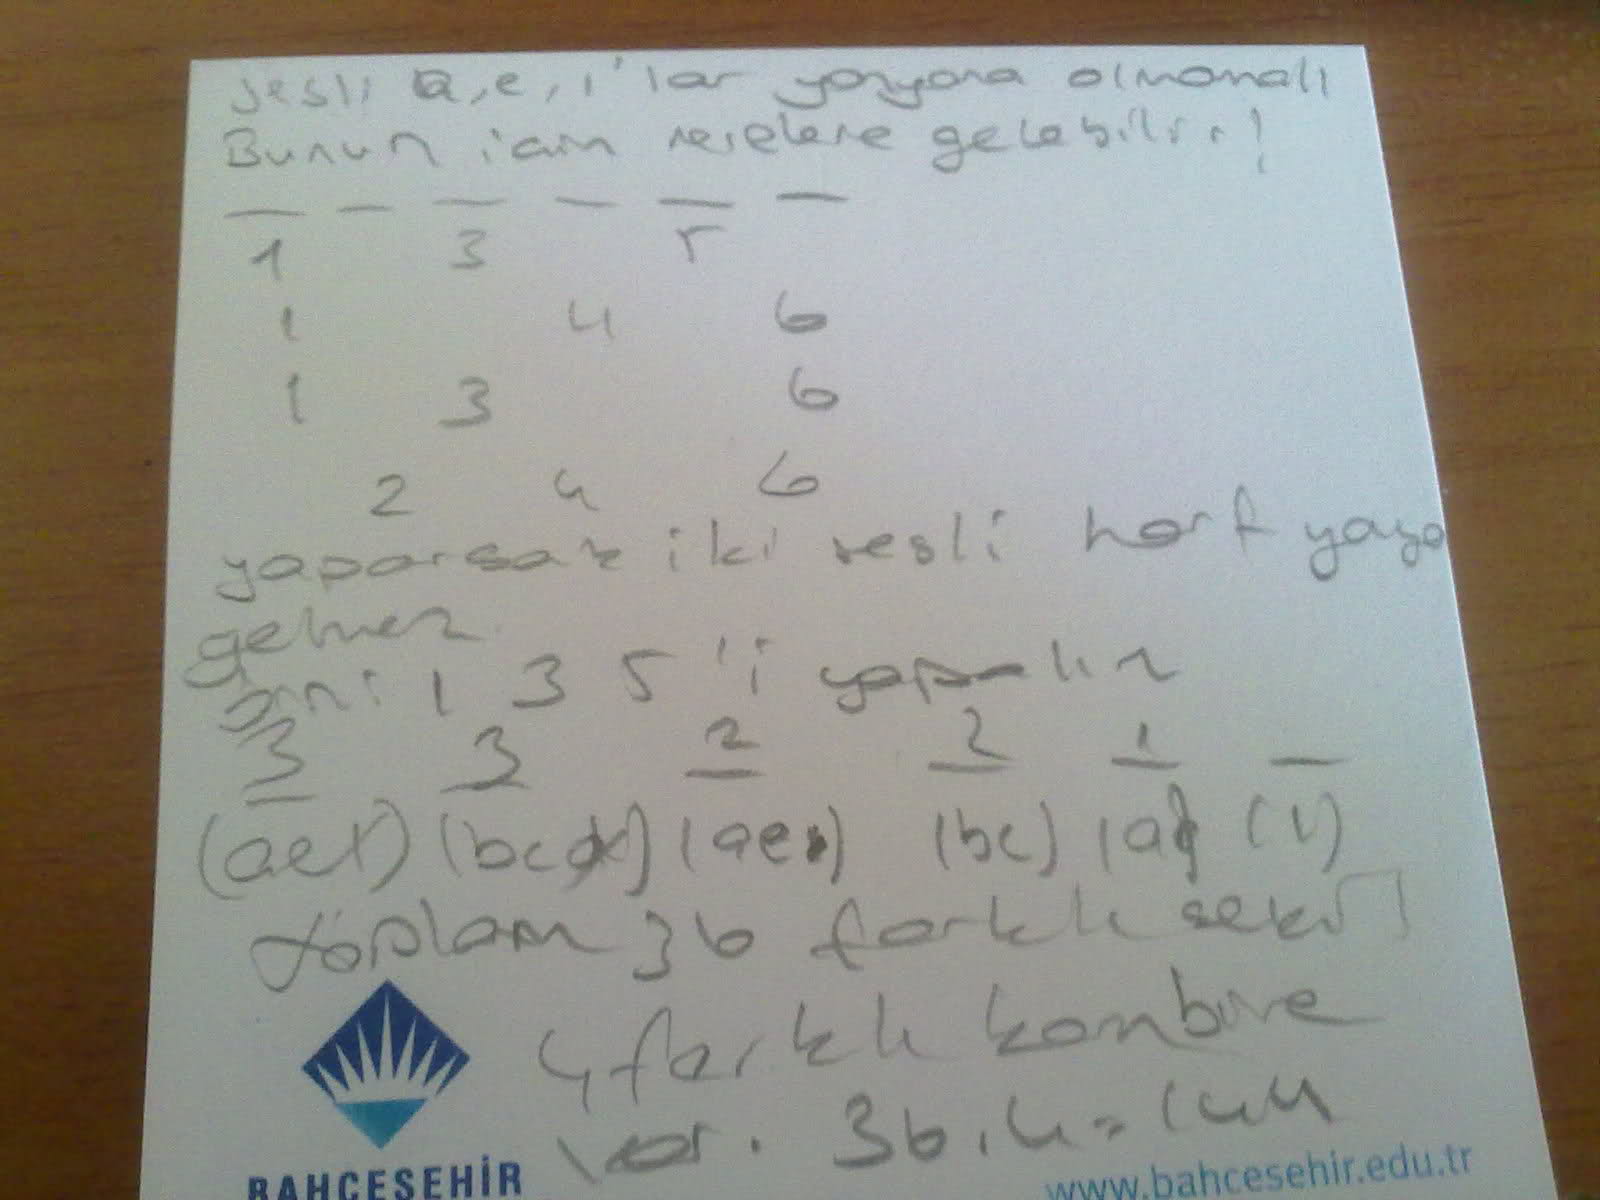 sesli a,e,ı'lar yanyana olmamalı
Bunun için nerelere gelebilir!
1 3 5
1 4 6
1 3 6
2 4 6
yaparsak iki sesli harf yaya
gelmez
1 3 5 'i yapalım
3 3 2 2 1
(aeı) (bcd) (ae) (bc) (a) (ı)
toplam 36 farklı sekil
4 farklı kombine
var. 36.4=144
BAHÇEŞEHİR
www.bahcesehir.edu.tr